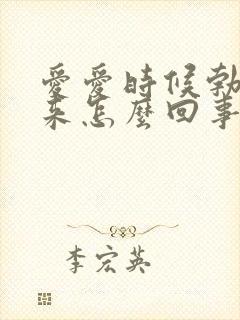 愛愛時候勃
來怎麼回事
李宏英